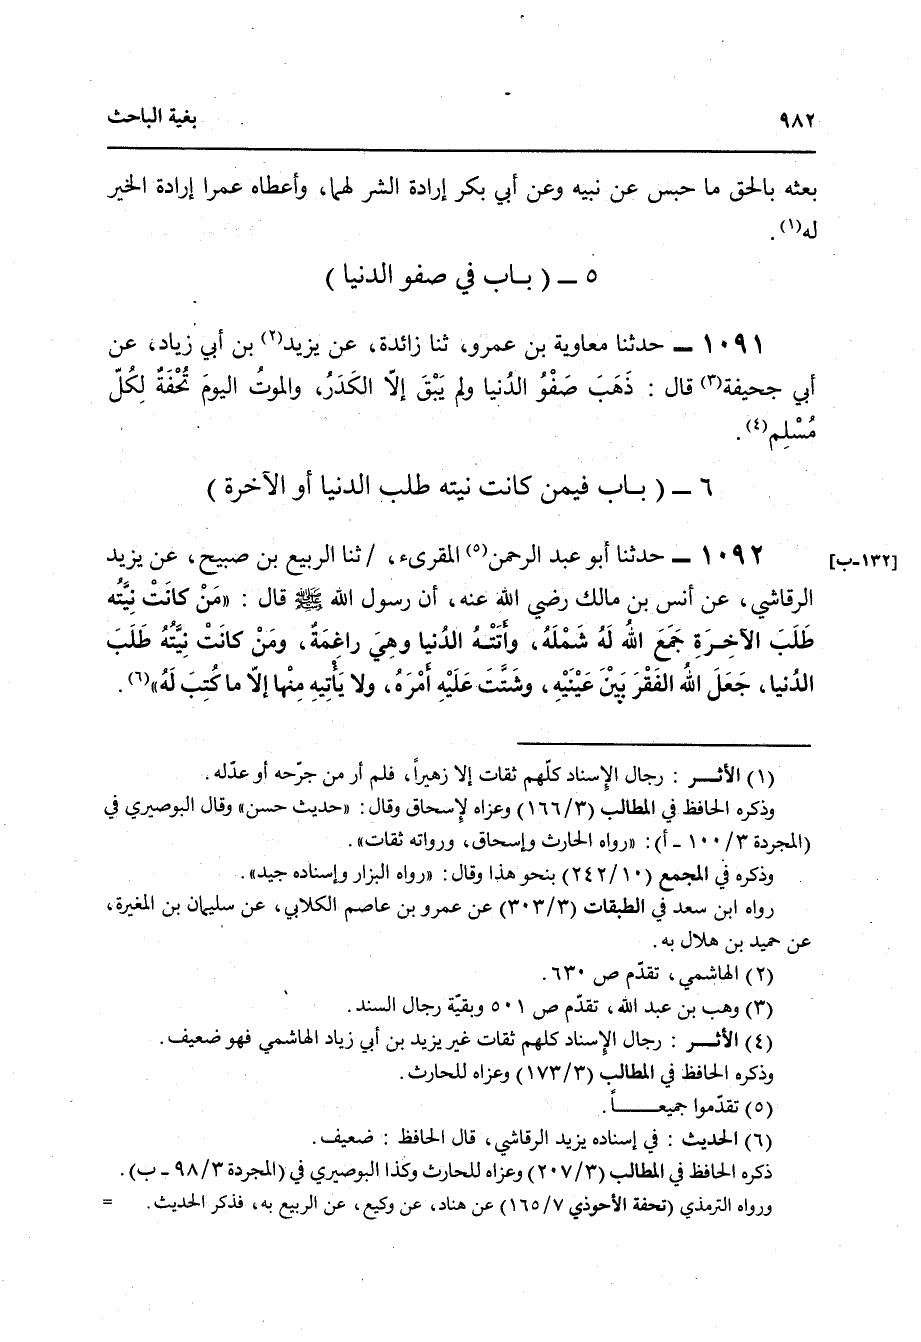 ٩٨٢ بغية الباحث
بعثه بالحق ما حبس عن نبيه وعن أبي بكر إرادة الشر لهما، وأعطاه عمرا إرادة الخير
له(١).
٥ ــ ( بـاب في صفو الدنيا )
١٠٩١ ــ حدثنا معاوية بن عمرو، ثنا زائدة، عن يزيد(٢) بن أبي زياد، عن
أبي جحيفة(٣) قال : ذَهَبَ صَفْوُ الدُنيا ولم يَبْقَ إلّا الكَدَرُ، والموتُ اليومَ تُحْفَةٌ لِكُلِّ
مُسْلِم(٤).
٦ ــ ( بـاب فيمن كانت نيته طلب الدنيا أو الآخرة )
١٠٩٢ ــ حدثنا أبو عبد الرحمن(٥) المقرىء، / ثنا الربيع بن صبيح، عن يزيد [١٣٢-ب]
الرقاشي، عن أنس بن مالك رضي الله عنه، أن رسول الله ﷺ قال : «مَنْ كانَتْ نِيَّتُه
طَلَبَ الآخِـرَةِ جَمَعَ اللهُ لَهُ شَمْلَهُ، وأَتَتْـهُ الدُنيا وهِيَ راغِمَةٌ، ومَنْ كانَتْ نِيَّتُهُ طَلَبَ
الدُنيا، جَعَلَ اللهُ الفَقْرَ بَيْنَ عَيْنَيْهِ، وشَتَّتَ عَلَيْهِ أَمْرَهُ، ولا يَأْتِيهِ مِنْها إلّا ما كُتِبَ لَهُ»(٦).
(١) الأثـــر : رجال الإسناد كلّهم ثقات إلا زهيراً، فلم أر من جرّحه أو عدّله.
وذكره الحافظ في المطالب (١٦٦/٣) وعزاه لإسحاق وقال: «حديث حسن» وقال البوصيري في
(المجردة ١٠٠/٣ ـ أ): «رواه الحارث وإسحاق، ورواته ثقات».
وذكره في المجمع (٢٤٢/١٠) بنحو هذا وقال: «رواه البزار وإسناده جيد».
رواه ابن سعد في الطبقات (٣٠٣/٣) عن عمرو بن عاصم الكلابي، عن سليمان بن المغيرة،
عن حميد بن هلال به.
(٢) الهاشمي، تقدّم ص ٦٣٠.
(٣) وهب بن عبد الله، تقدّم ص ٥٠١ وبقيّة رجال السند.
(٤) الأثـــر : رجال الإسناد كلهم ثقات غير يزيد بن أبي زياد الهاشمي فهو ضعيف.
وذكره الحافظ في المطالب (١٧٣/٣) وعزاه للحارث.
(٥) تقدّموا جميعـــــاً.
(٦) الحديث : في إسناده يزيد الرقاشي، قال الحافظ : ضعيف.
ذكره الحافظ في المطالب (٢٠٧/٣) وعزاه للحارث وكذا البوصيري في (المجردة ٩٨/٣ ـ ب).
ورواه الترمذي (تحفة الأحوذي ١٦٥/٧) عن هناد، عن وكيع، عن الربيع به، فذكر الحديث. =